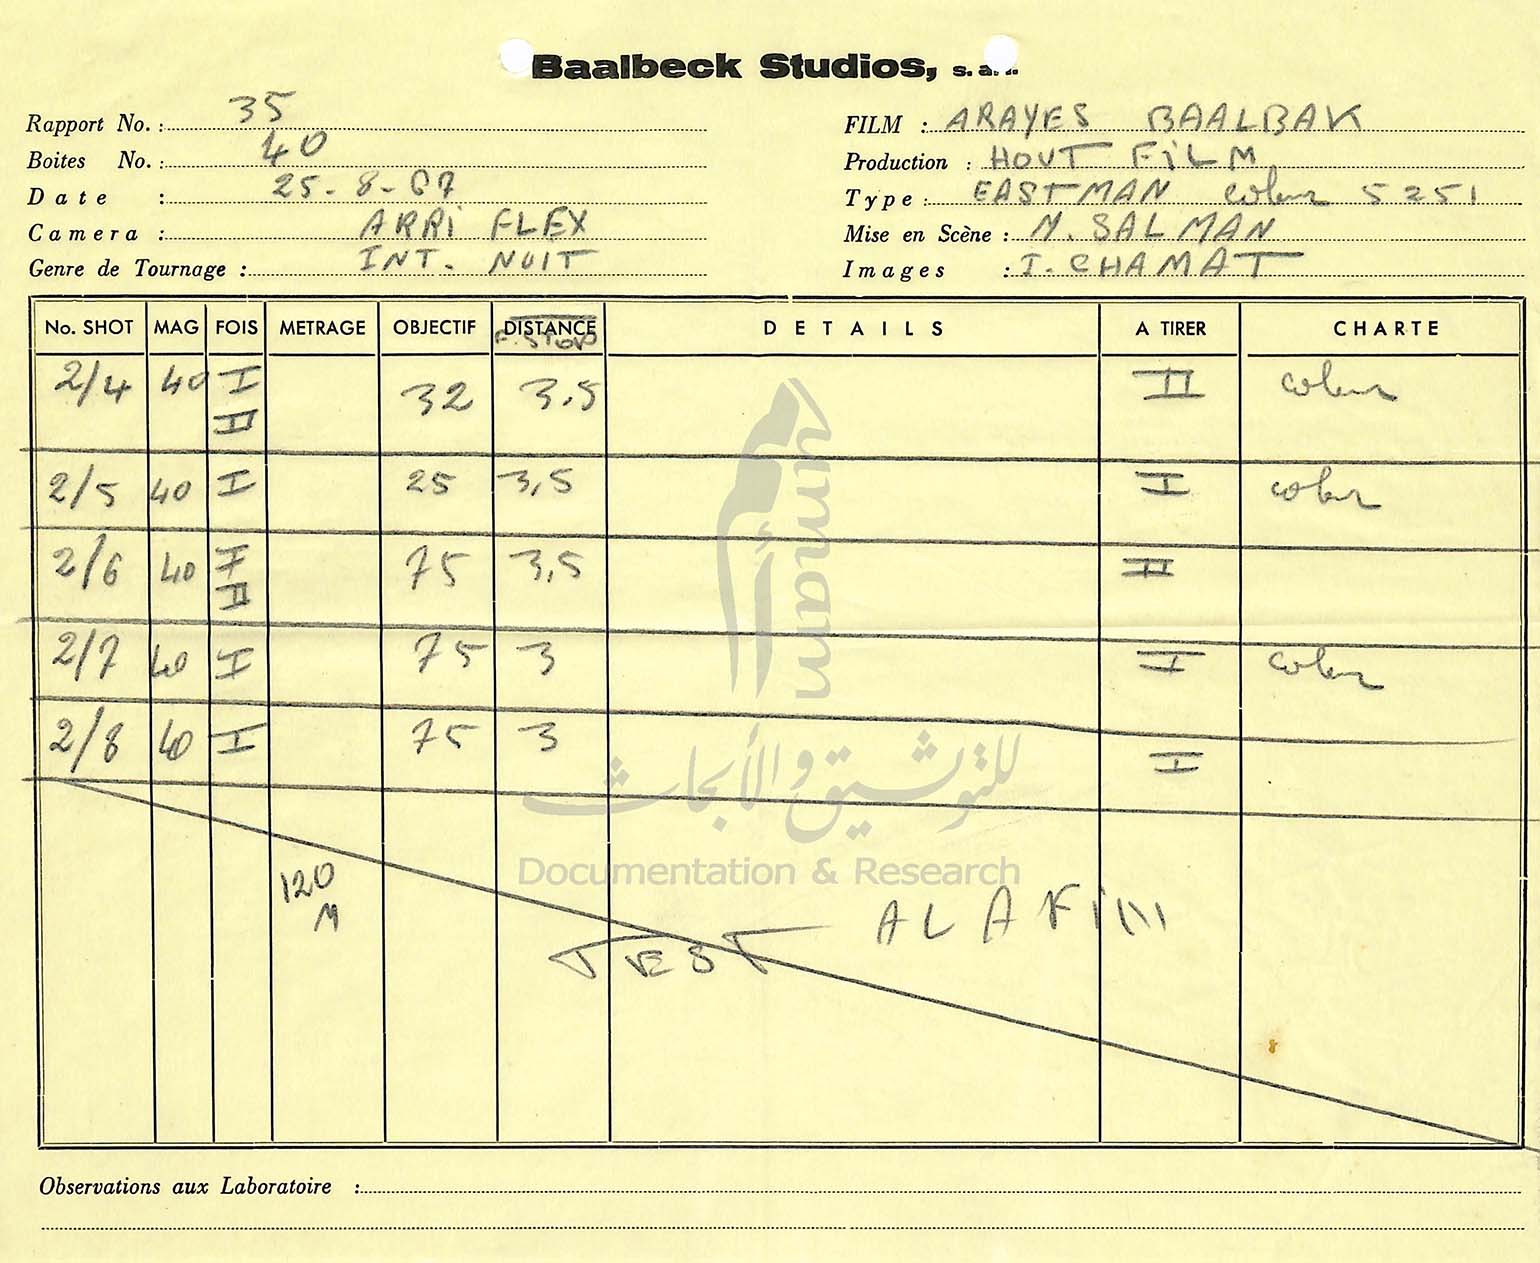 Baalbeck Studios, s.a.r.l.
Rapport No. : 35
Boites No. : 40
Date : 25-8-67
Camera : ARRI FLEX
Genre de Tournage : INT. NUIT
FILM : ARAYES BAALBAK
Production : HOUT FILM
Type : EASTMAN coleur 5251
Mise en Scène : M. SALMAN
Images : I. CHAMAT
No. SHOT MAG FOIS METRAGE OBJECTIF DISTANCE DETAILS A TIRER CHARTE
F. STOP
2/4 40 I 32 3.5 II coleur
II
2/5 40 I 25 3,5 I coleur
2/6 40 I 75 3,5 II
II
2/7 40 I 75 3 I coleur
2/8 40 I 75 3 I
120
M
TEST A LA FIN
Observations aux Laboratoire :
umam
للتوثيق والأبحاث
Documentation & Research